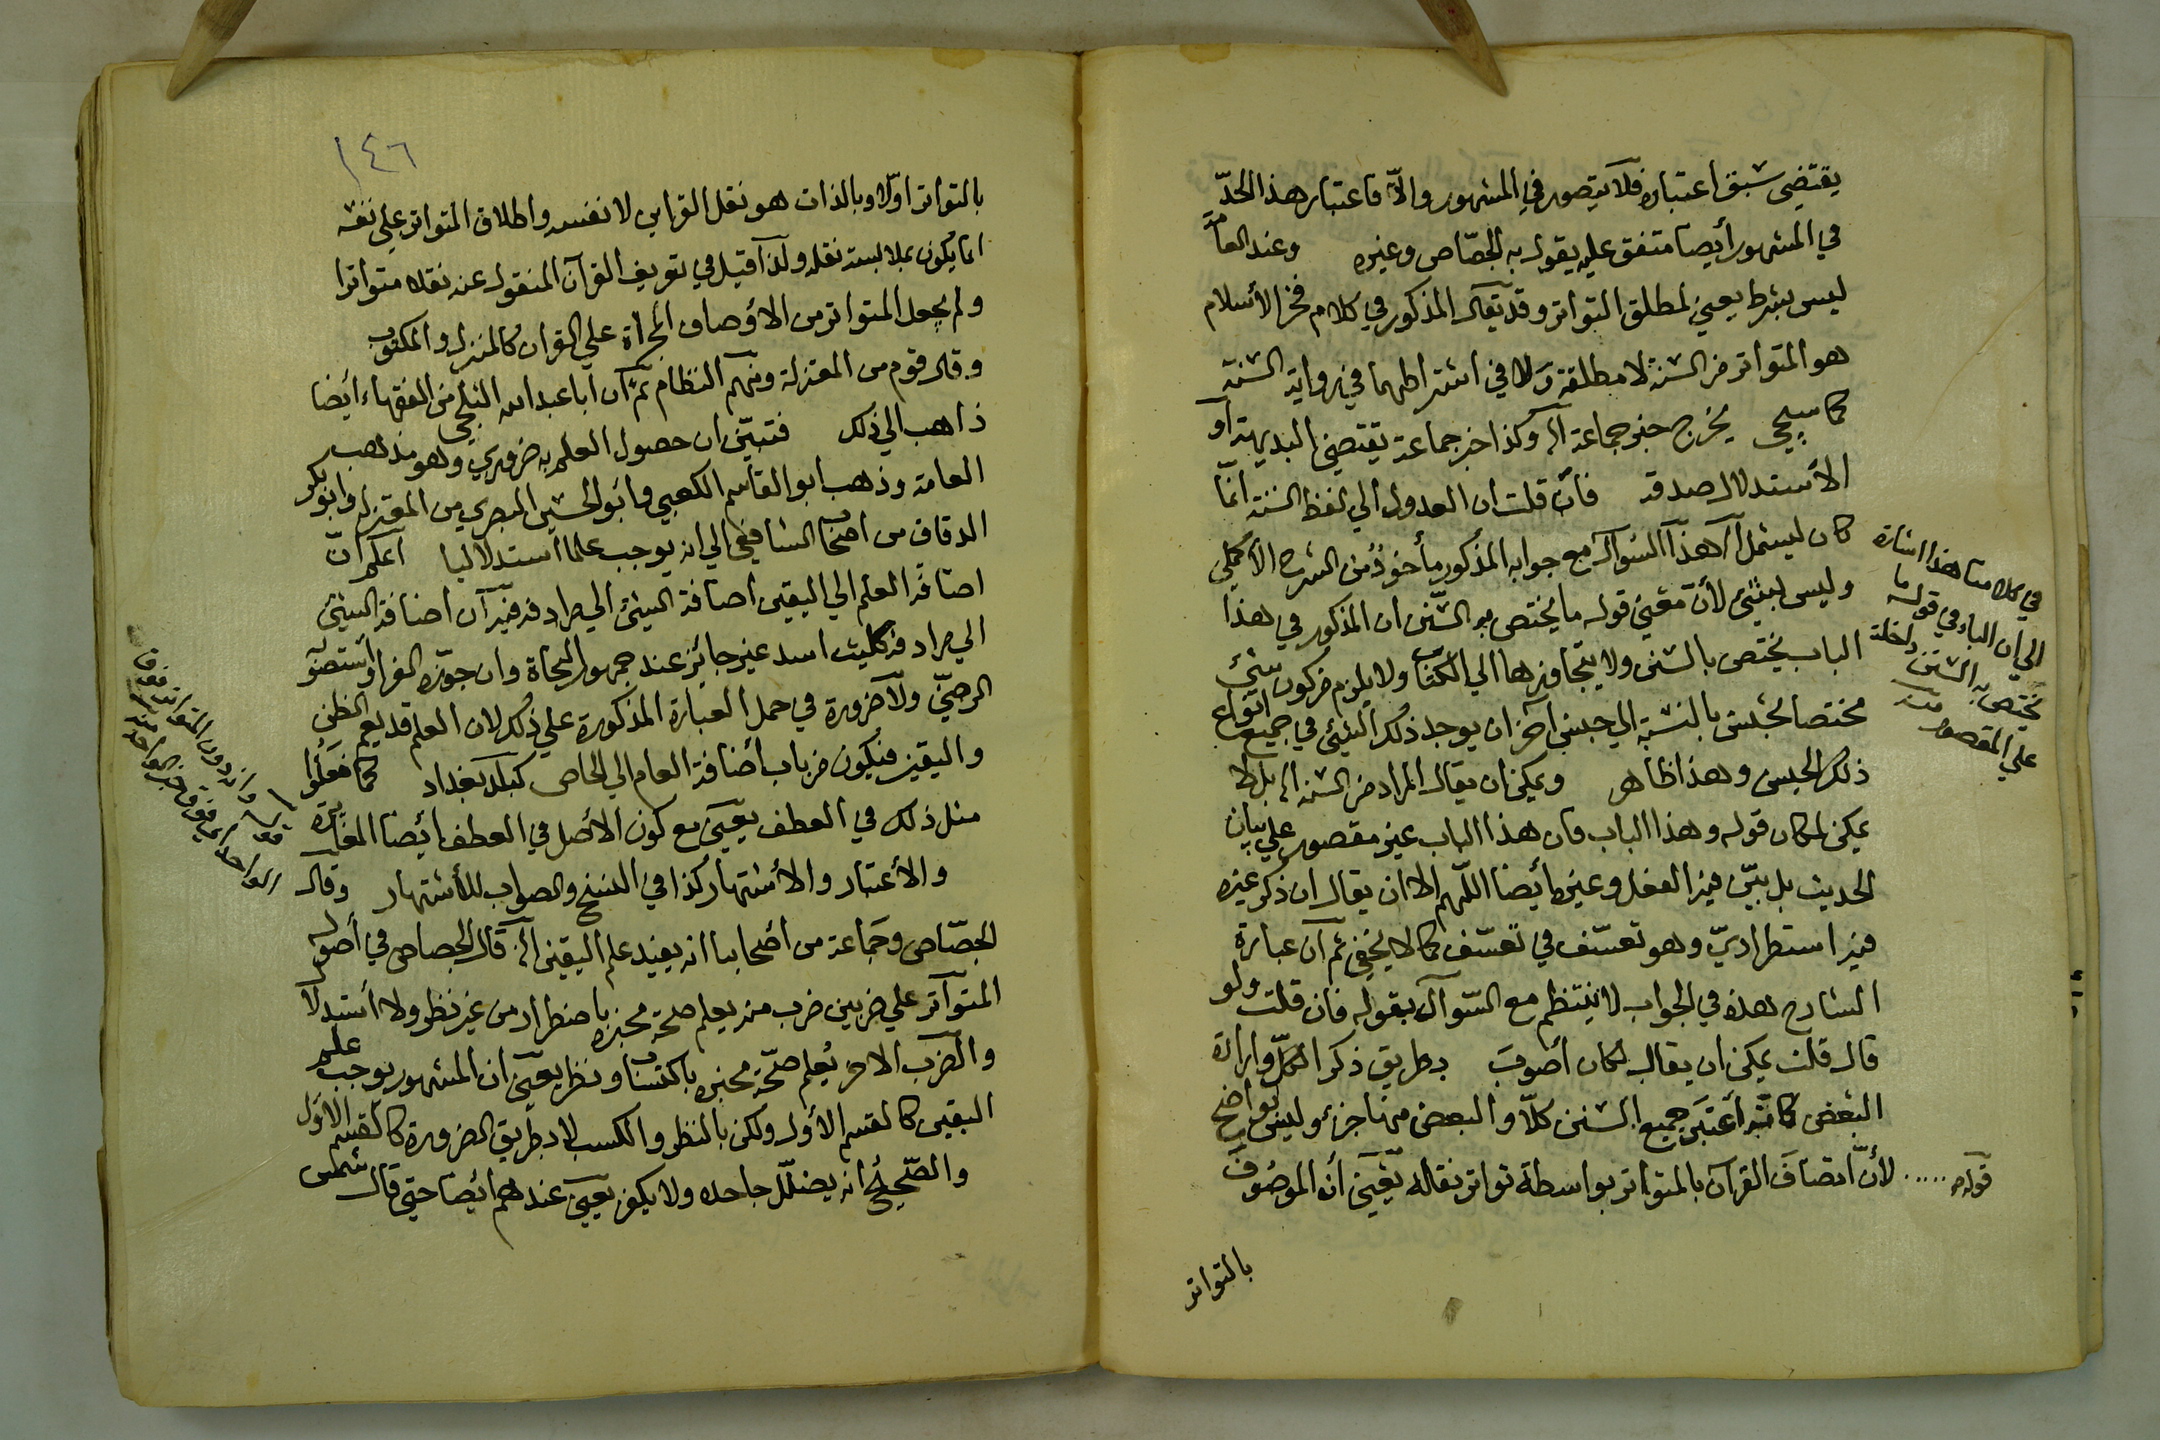 يقتضي سبق اعتباره فلا يتصور في المشهور والا فاعتبار هذا الحدّ
في المشهور أيضا متفق عليه يقول به الجصّاص وغيره وعند العامّة
ليس بشرط يعني لمطلق التواتر وقد يقال المذكور في كلام فخر الأسلام
هو المتواتر من السنة لا مطلقة ولا في اشتراطهما في رواية السنة
كما سيجي يخرج خبر جماعة الخ وكذا خبر جماعة يقتضي البديهة أو
الأستدلال صدقه فان قلت ان العدول الي لفظ السنة انما
كان ليشمل الخ هذا السوال مع جوابه المذكور مأخوذ من الشرح الأكملي
وليس بشئ لأن معني قوله ما يختص به السّنن ان المذكور في هذا
الباب يختص بالسنن ولا يتجاوزها الي الكتاب ولا يلزم من كون شئ
مختصا بجنس بالنسبة الي جنس آخر ان يوجد ذلك الشئ في جميع انواع
ذلك الجنس وهذا ظاهر ويمكن ان يقال المراد من السنة الخ بل لا
يمكن لمكان قوله وهذا الباب فان هذا الباب غير مقصور علي بيان
الحديث بل بيّن فيه الفعل وغيره أيضا اللّهم الا ان يقال ان ذكر غيره
فيه استطراديّ وهو تعسّف في تعسّف كما لا يخفي ثم ان عبارة
الشارح هذه في الجواب لا ينتظم مع السّوال بقوله فان قلت ولو
قال قلت يمكن ان يقال لكان أصوب بطريق ذكر الكلّ وارادة
البعض كانه أعتبر جميع السنن كلّا والبعض منها جزء وليس بواضح
قوله ..... لأنّ اتصاف القرآن بالمتواتر بواسطة تواتر نقاله يعني أن الموصوف
بالتواتر
في كلامنا هذا اشارة
الي ان الباء في قوله ما
يختص به السنن داخلة
علي المقصور منه
١٤٦
بالتواتر اوّلا وبالذات هو نقل القرآن لا نفسه واطلاق المتواتر علي نفسه
انما يكون بملابسته نقله ولذا قيل في تعريف القرآن المنقول عنه نقلا متواترا
ولم يجعل المتواتر من الاوصاف المجراة علي القران كالمنزل والمكتوب
وقال قوم من المعتزلة ومنهم النظام ثم ان ابا عبد الله الثلجي من الفقهاء أيضا
ذاهب الي ذلك فتبيّن ان حصول العلم به ضروري وهو مذهب
العامة وذهب ابو القاسم الكعبي وابو الحسين البصري من المعتزلة وابو بكر
الدقاق من اصحاب الشافعي الي انه يوجب علما استدلاليا اعلم انّ
اضافة العلم الي اليقين اضافة الشئ الي مرادفه فيه ان اضافة الشئ
الي مرادفه كليث اسد غير جائز عند جمهور النحاة وان جوّزه الفراء واستصوبه
الرضيّ ولا ضرورة في حمل العبارة المذكورة علي ذلك لان العلم قد يعم الظن
واليقين فيكون من باب أضافة العام الي الخاص كبلد بغداد كما فعلوا
مثل ذلك في العطف يعني مع كون الأصل في العطف ايضا المغايرة
والأعتبار والأشتهار كذا في النسخ والصواب للأشتهار وقال
الجصّاص وجماعة من أصحابنا انه يفيد علم اليقين الخ قال الجصاص في أصوله
المتواتر علي ضربين ضرب منه يعلم صحة مخبره باضطرار من غير نظر ولا استدلال
والضرب الاخر يُعلم صحّة مخبره باكتساب ونظر يعني ان المشهور يوجب علم
اليقين كالقسم الأول ولكن بالنظر والكسب لا بطريق الضرورة كالقسم الاول
والصّحيح أنه يضلّل جاحده ولا يكفر يعني عندهم ايضا حتي قال شمس